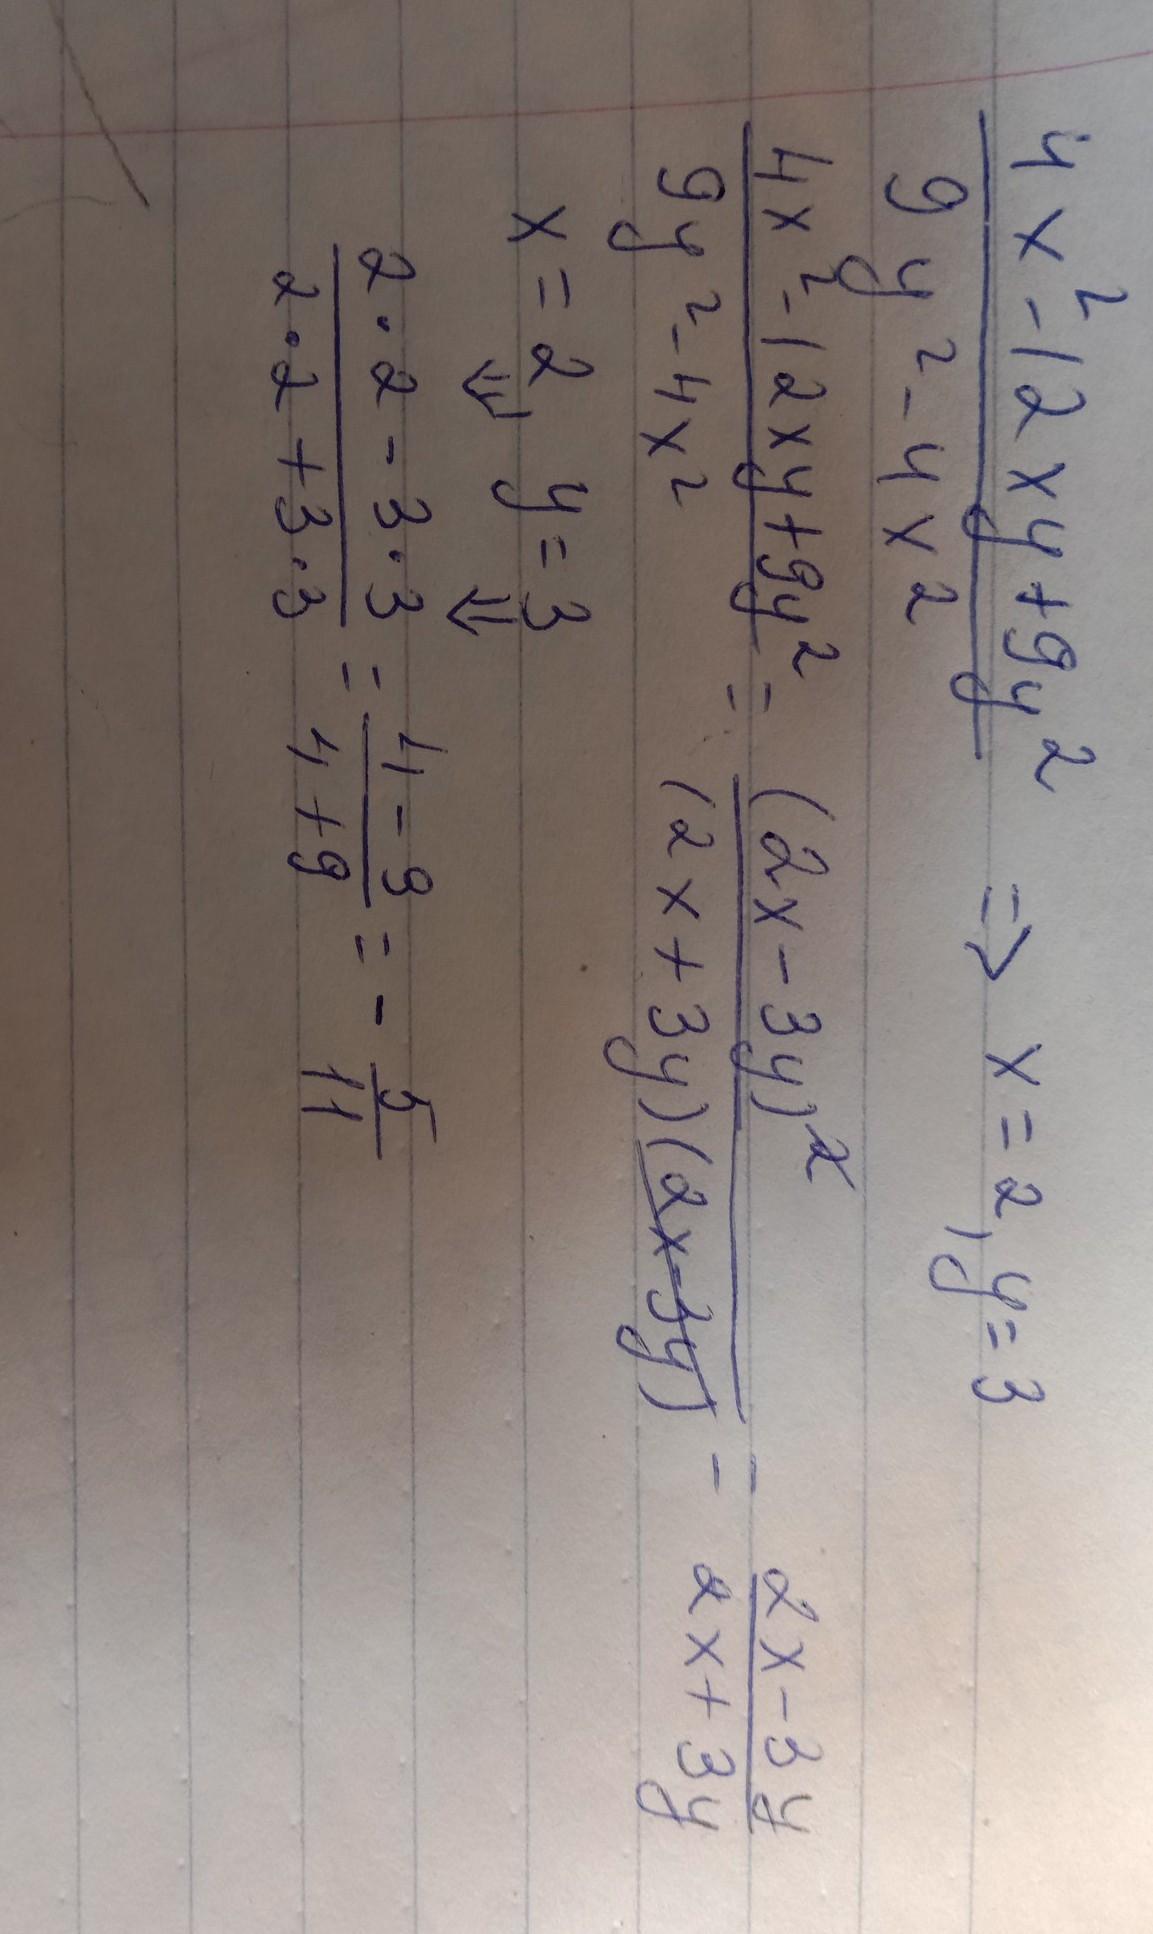 4x²-12xy+9y² / 9y²-4x² => x=2, y=3
4x²-12xy+9y² / 9y²-4x² = (2x-3y)² / (2x+3y)(2x-3y) = 2x-3y / 2x+3y
x=2, y=3
⇓ ⇓
2·2-3·3 / 2·2+3·3 = 4-9 / 4+9 = - 5/11